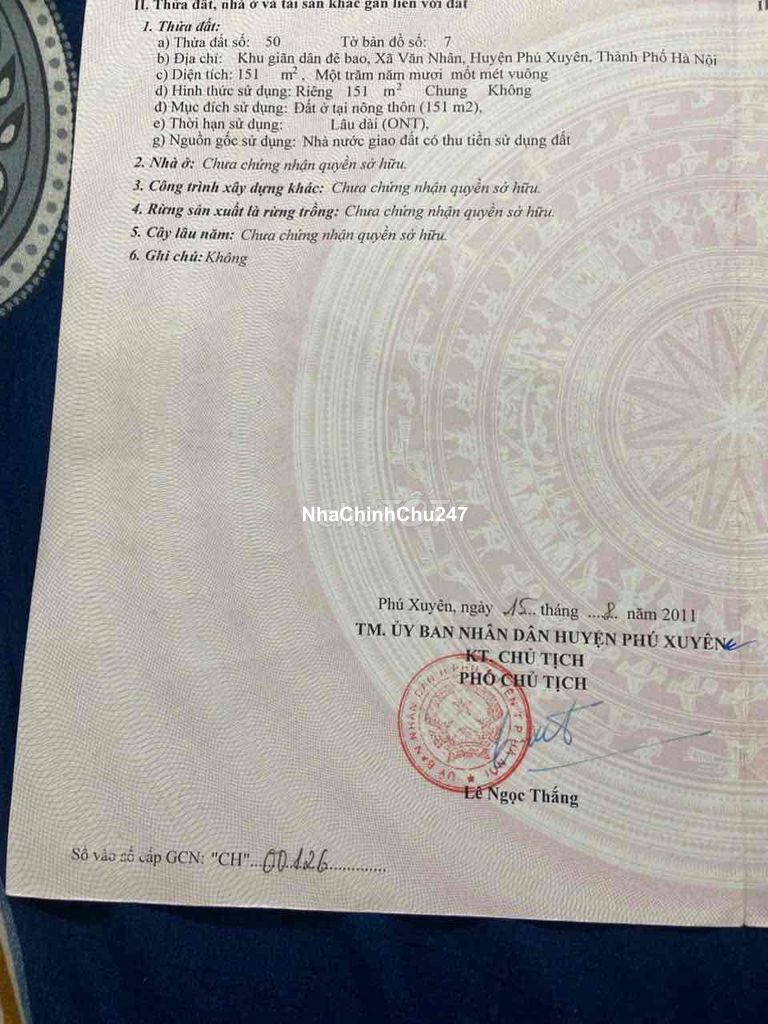 II. Thửa đất, nhà ở và tài sản khác gắn liền với đất
1. Thửa đất:
a) Thửa đất số: 50 Tờ bản đồ số: 7
b) Địa chỉ: Khu giãn dân đê bao, Xã Văn Nhân, Huyện Phú Xuyên, Thành Phố Hà Nội
c) Diện tích: 151 m², Một trăm năm mươi mốt mét vuông
d) Hình thức sử dụng: Riêng 151 m² Chung Không
đ) Mục đích sử dụng: Đất ở tại nông thôn (151 m2),
e) Thời hạn sử dụng: Lâu dài (ONT),
g) Nguồn gốc sử dụng: Nhà nước giao đất có thu tiền sử dụng đất
2. Nhà ở: Chưa chứng nhận quyền sở hữu.
3. Công trình xây dựng khác: Chưa chứng nhận quyền sở hữu.
4. Rừng sản xuất là rừng trồng: Chưa chứng nhận quyền sở hữu.
5. Cây lâu năm: Chưa chứng nhận quyền sở hữu.
6. Ghi chú: Không
NhaChinhChu247
Phú Xuyên, ngày 15 tháng 8 năm 2011
TM. ỦY BAN NHÂN DÂN HUYỆN PHÚ XUYÊN
KT. CHỦ TỊCH
PHÓ CHỦ TỊCH
ỦY BAN NHÂN DÂN H.PHÚ XUYÊN T.P HÀ NỘI
Lê Ngọc Thắng
Số vào sổ cấp GCN: "CH"...00126.............